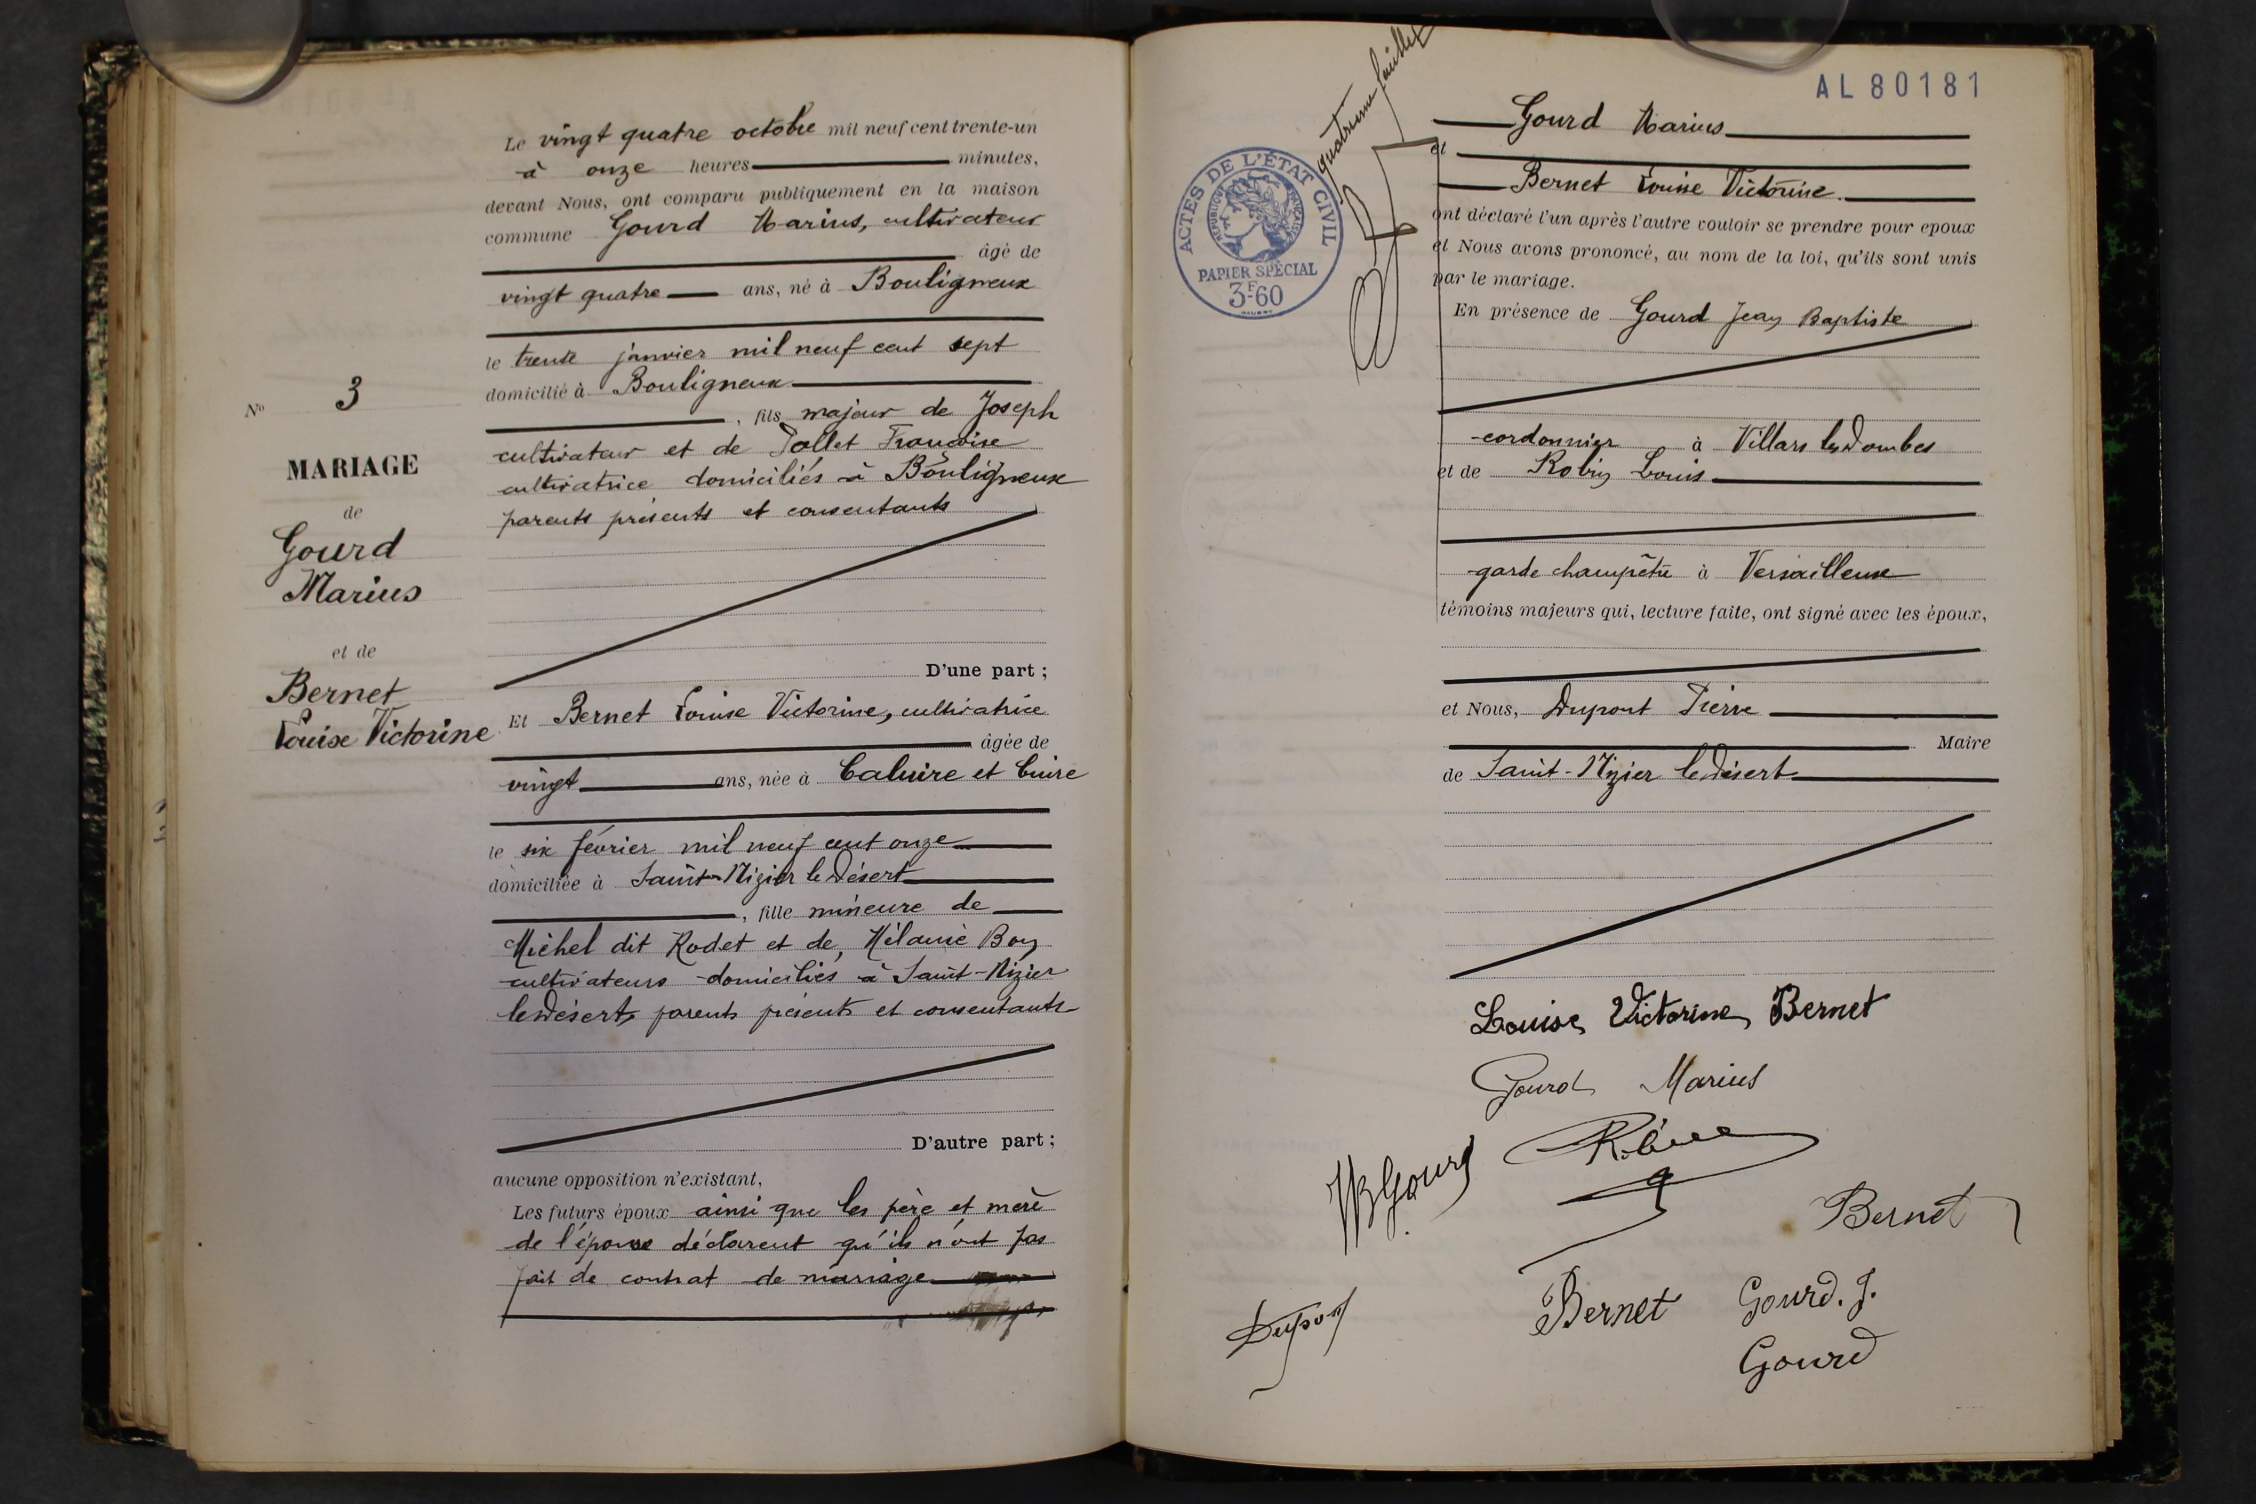 Le vingt quatre octobre mil neuf cent trente-un
à onze heures minutes,
devant Nous, ont comparu publiquement en la maison
commune Gourd Marius, cultivateur
âgé de
vingt quatre ans, né à Bouligneux
le trente janvier mil neuf cent sept
domicilié à Bouligneux
, fils majeur de Joseph
cultivateur et de Pollet Françoise
cultivatrice domiciliés à Bouligneux
parents présents et consentants
D'une part ;
Nº 3
MARIAGE
de
Gourd
Marius
et de
Bernet
Louise Victorine
Et Bernet Louise Victorine, cultivatrice
âgée de
vingt ans, née à Caluire et Cuire
le six février mil neuf cent onze
domiciliée à Saint-Nizier le Désert
, fille mineure de
Michel dit Rodet et de Mélanie Boy
cultivateurs domiciliés à Saint-Nizier
le Désert, parents présents et consentants
D'autre part ;
aucune opposition n'existant,
Les futurs époux ainsi que les père et mère
de l'épouse déclarent qu'ils n'ont pas
fait de contrat de mariage
AL 80181
quatrième feuillet
ACTES DE L'ÉTAT CIVIL
RÉPUBLIQUE FRANÇAISE
PAPIER SPÉCIAL
3F60
Gourd Marius
et
Bernet Louise Victorine
ont déclaré l'un après l'autre vouloir se prendre pour époux
et Nous avons prononcé, au nom de la loi, qu'ils sont unis
par le mariage.
En présence de Gourd Jean Baptiste
cordonnier à Villars les Dombes
et de Robin Louis
garde champêtre à Versailleux
témoins majeurs qui, lecture faite, ont signé avec les époux,
et Nous, Dupont Pierre
Maire
de Saint-Nizier le Désert
Louise Victorine Bernet
Gourd Marius
JB Gourd
Bernet
Dupont
Bernet Gourd. J.
Gourd